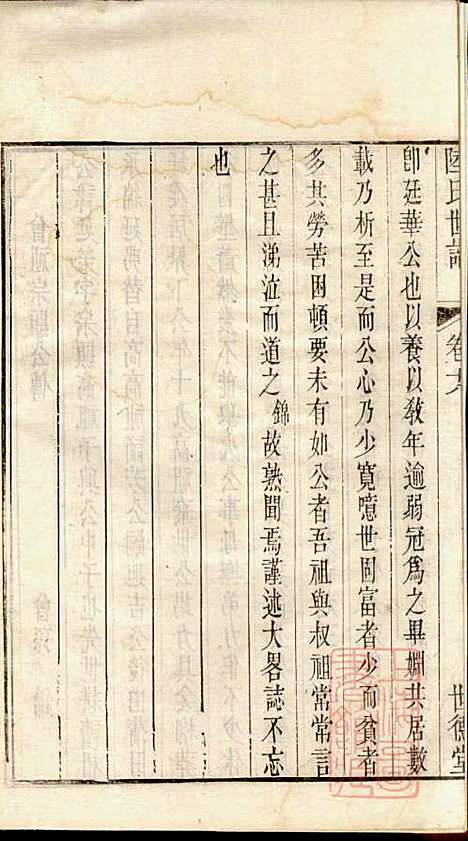 陸氏世譜
卷六
世德堂
卽廷華公也以養以敎年逾弱冠爲之畢姻共居數
載乃析至是而公心乃少寬噫世固富者少而貧者
多其勞苦困頓要未有如公者吾祖與叔祖常常言
之甚且涕泣而道之錦故熟聞焉謹述大畧誌不忘
也